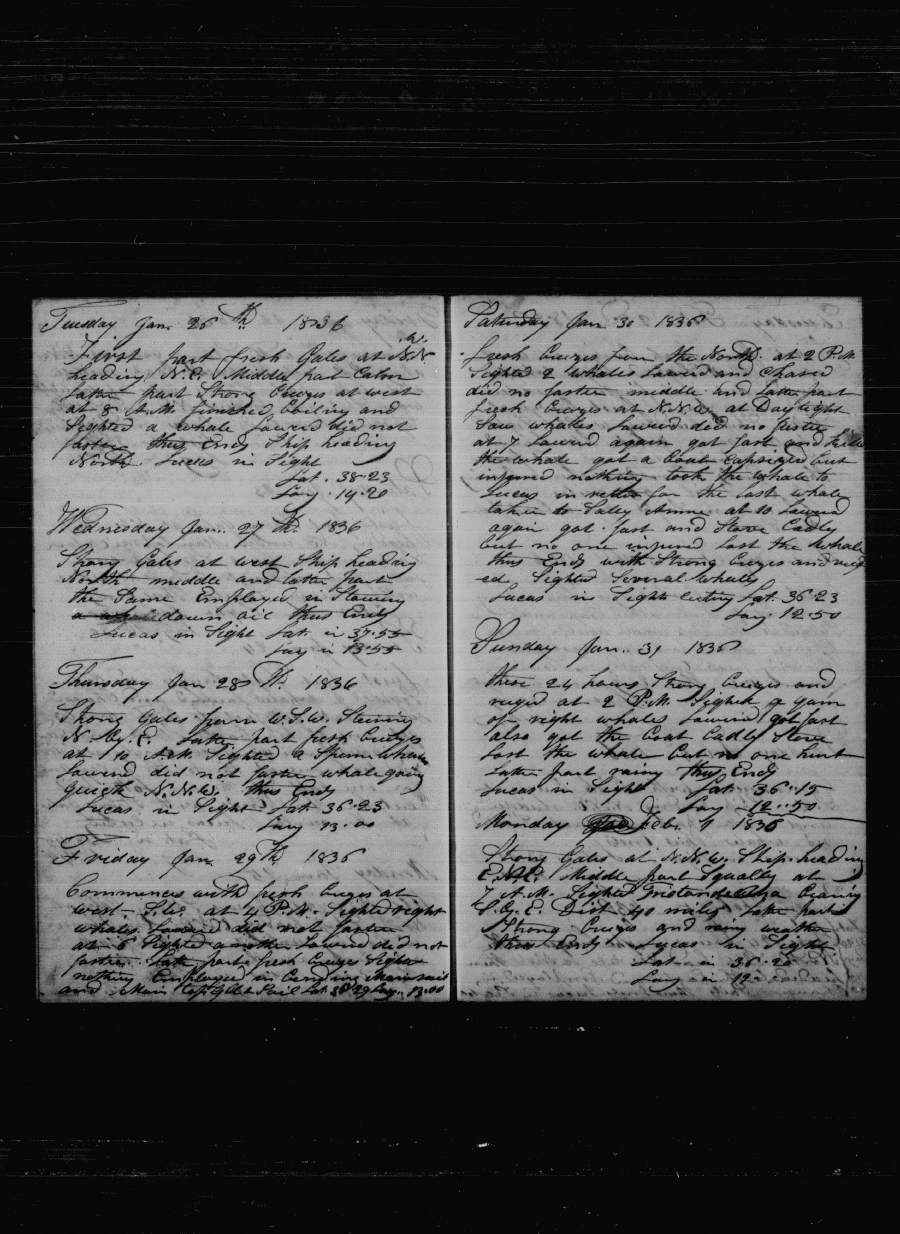 Tuesday Jan. 26th 1836
First part fresh Gales at N.N.W.
heading N.E. Middle part Calm
Latter part Strong Breezes at west
at 8 A.M. finished boiling and
Sighted a whale Lowerd did not
fasten thus Ends Ship heading
North. Lucas in Sight
Lat. 38.23
Long. 14.20
Wednesday Jan. 27th 1836
Strong Gales at west Ship heading
North middle and latter part
the Same Employed in Stowing
down oil thus Ends
Lucas in Sight Lat. in 37.55
Long in 13.55
Thursday Jan 28th 1836
Strong Gales from W.S.W. Steering
N. By. E. Latter part fresh Breezes
at 10 A.M. Sighted a Sperm whale
Lowerd did not fasten whale going
quick N.N.W. thus Ends
Lucas in Sight Lat. 36.23
Long 13.00
Friday Jan. 29th 1836
Commences with fresh Breezes at
West. S.W. at 4 P.M. Sighted right
whales Lowerd did not fasten
at 6 Sighted another Lowerd did not
fasten. Latter part fresh Breezes Sighted
nothing Employed in Bending Mainsail
and Main Sail Lat. Long. 13.00
Saturday Jan 30 1836
fresh Breezes from the North. at 2 P.M.
Sighted 2 whales Lowerd and Chased
did no fasten middle and Latter part
fresh Breezes at N.N.W. at Day light
Saw whales Lowerd did no fasten
at 7 Lowerd again got fast and killd
the whale got a boat capsized but
injured nothing took the whale to
Lucas in return for the last whale
taken to Sally Anne at 10 Lowerd
again got fast and Stove Badly
but no one injured lost the Whale
thus Ends with Strong Breezes and rug
ed Sighted Several whales
Lucas in Sight Lat. 36.23
Long. 12.50
Sunday Jan. 31 1836
these 24 hours Strong Breezes and
ruged at 2 P.M. Sighted a gam
of right whales Lowerd got fast
also got the Boat Badly Stove
Lost the whale but no one hurt
Latter part rainy thus Ends
Lucas in Sight Lat. 36.15
Long 12.50
Monday Feb. 1 1836
Strong Gales at N.N.W. Ship heading
E.N.E. Middle part Squally at
7 A.M. Sighted Bearing
S.By.E. Dist 40 miles Latter part
Strong Breezes and rainy weather
thus Ends Lucas in Sight
Lat in 36.20
Long in 12